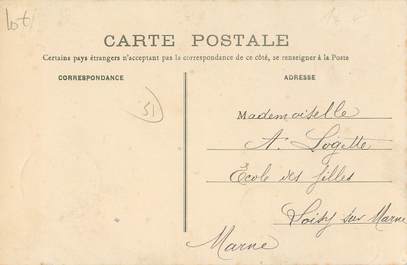 lot
CARTE POSTALE
Certains pays étrangers n'acceptant pas la correspondance de ce côté, se renseigner à la Poste
CORRESPONDANCE
ADRESSE
51
Mademoiselle
A. Logette
École des filles
Loisy sur Marne
Marne